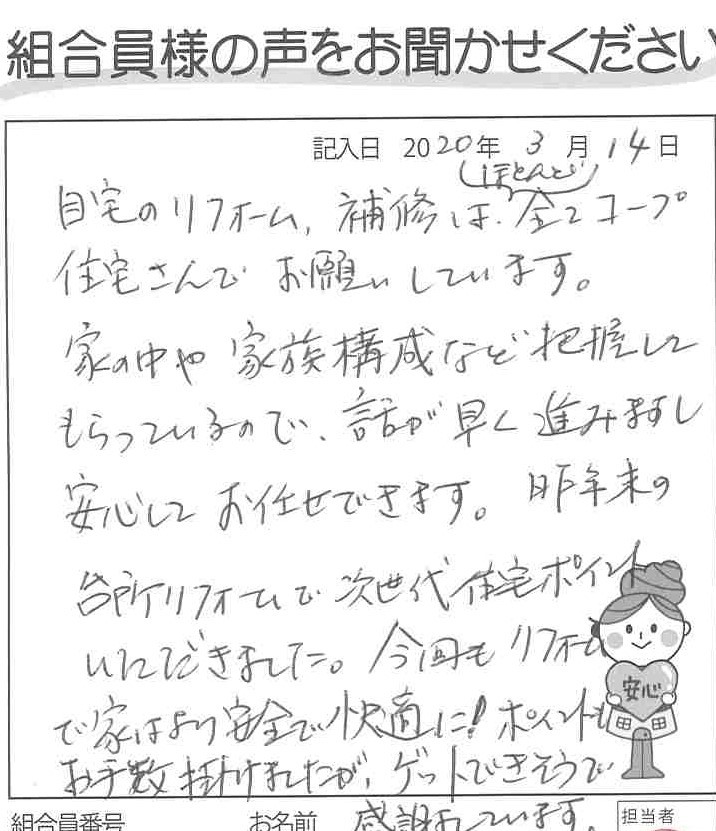 組合員様の声をお聞かせください
記入日 2020年 3月14日
(ほとんど)
自宅のリフォーム、補修は、全てコープ
住宅さんで お願いしています。
家の中や 家族構成など 把握して
もらっているので、話が 早く 進みますし
安心して お任せできます。 昨年末の
台所リフォームで 次世代 住宅ポイント
いただきました。今回も リフォーム
で家はより 安全で 快適に! ポイントも
お手数 掛けましたが、ゲットできそうで
感謝しています。
安心
組合員番号 お名前 担当者